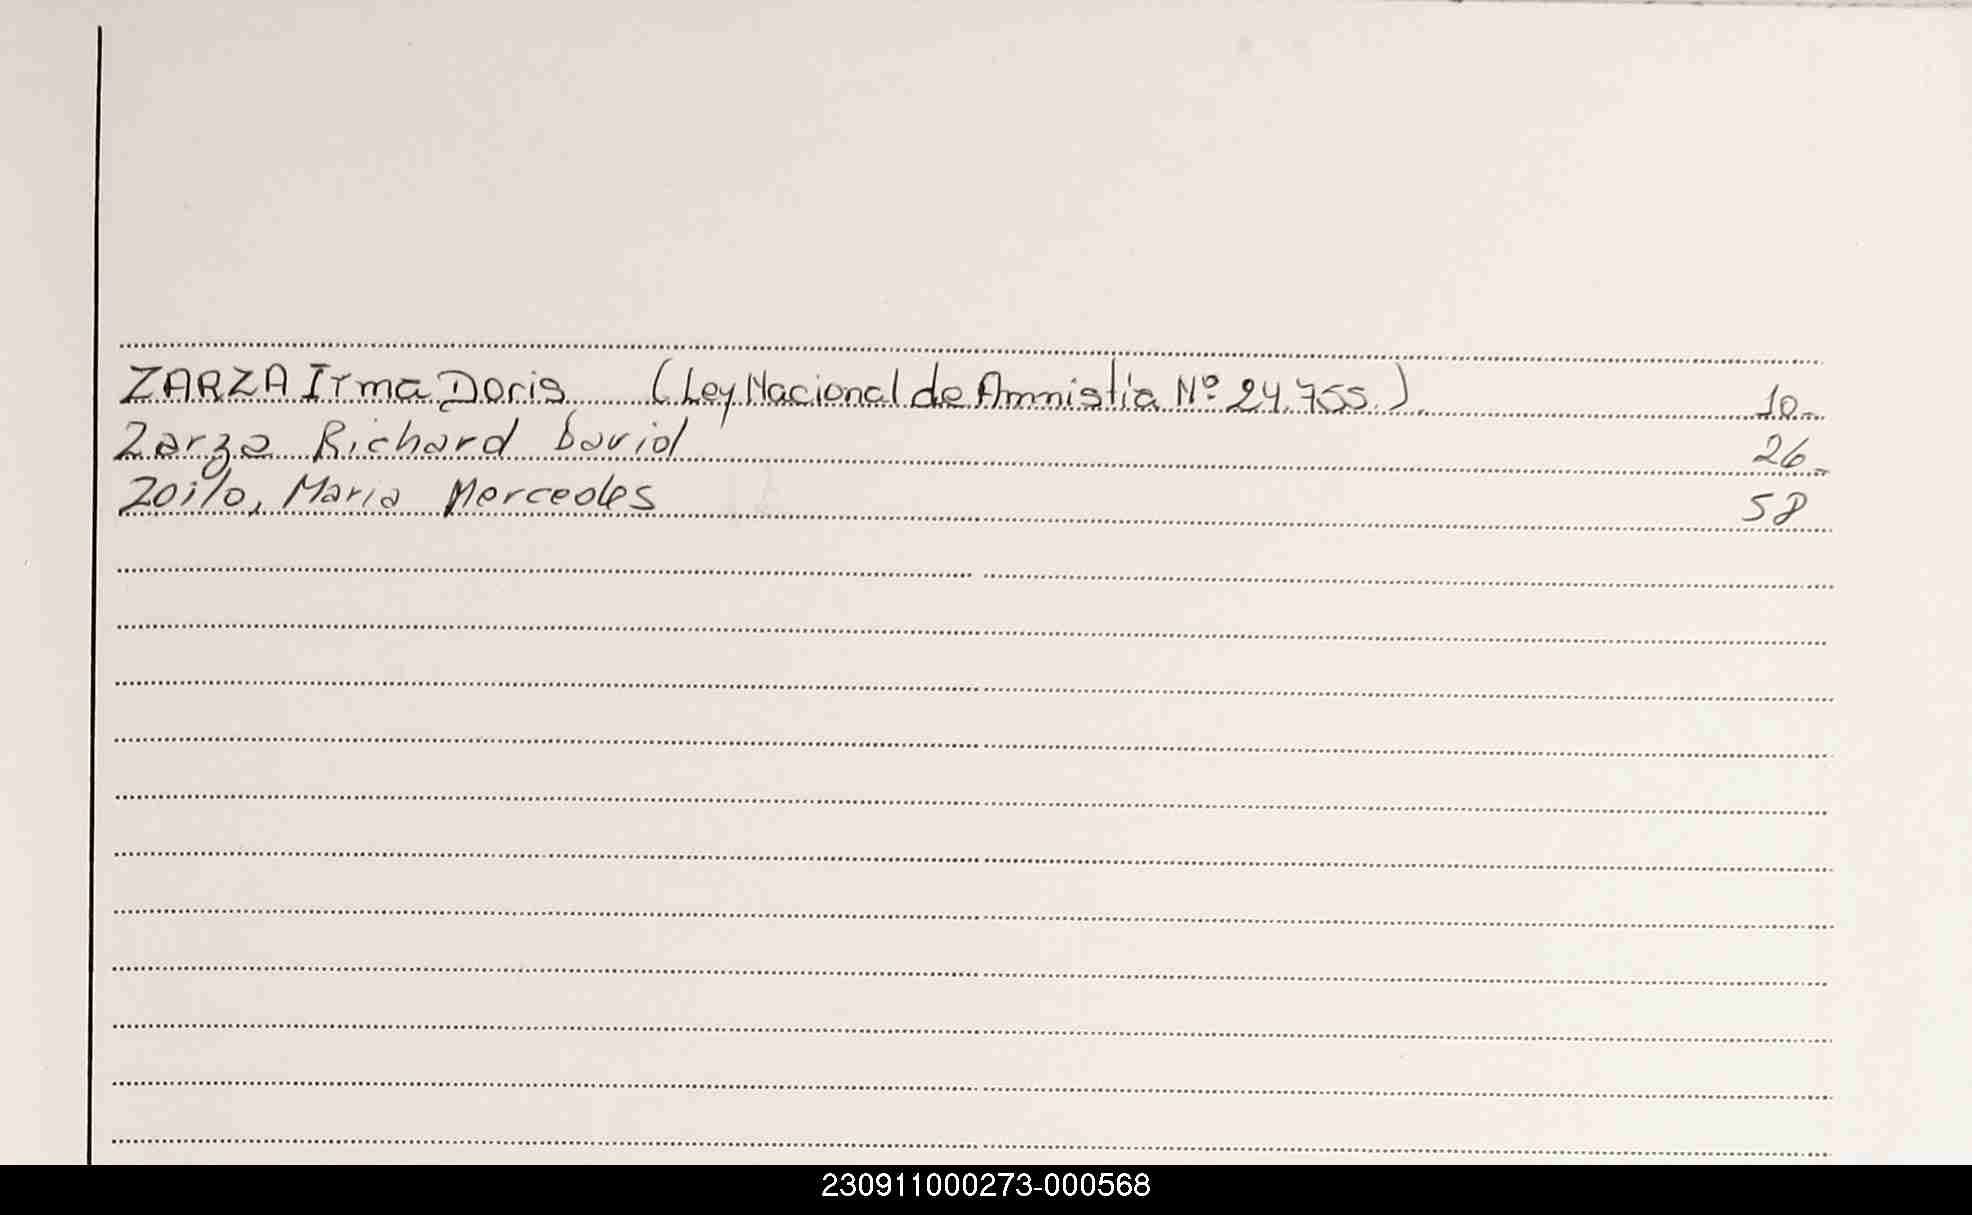 ZARZA Irma Doris (Ley Nacional de Amnistia Nº 24.755.) 10.-
Zarza Richard David 26.-
Zoilo, Maria Mercedes 58
230911000273-000568